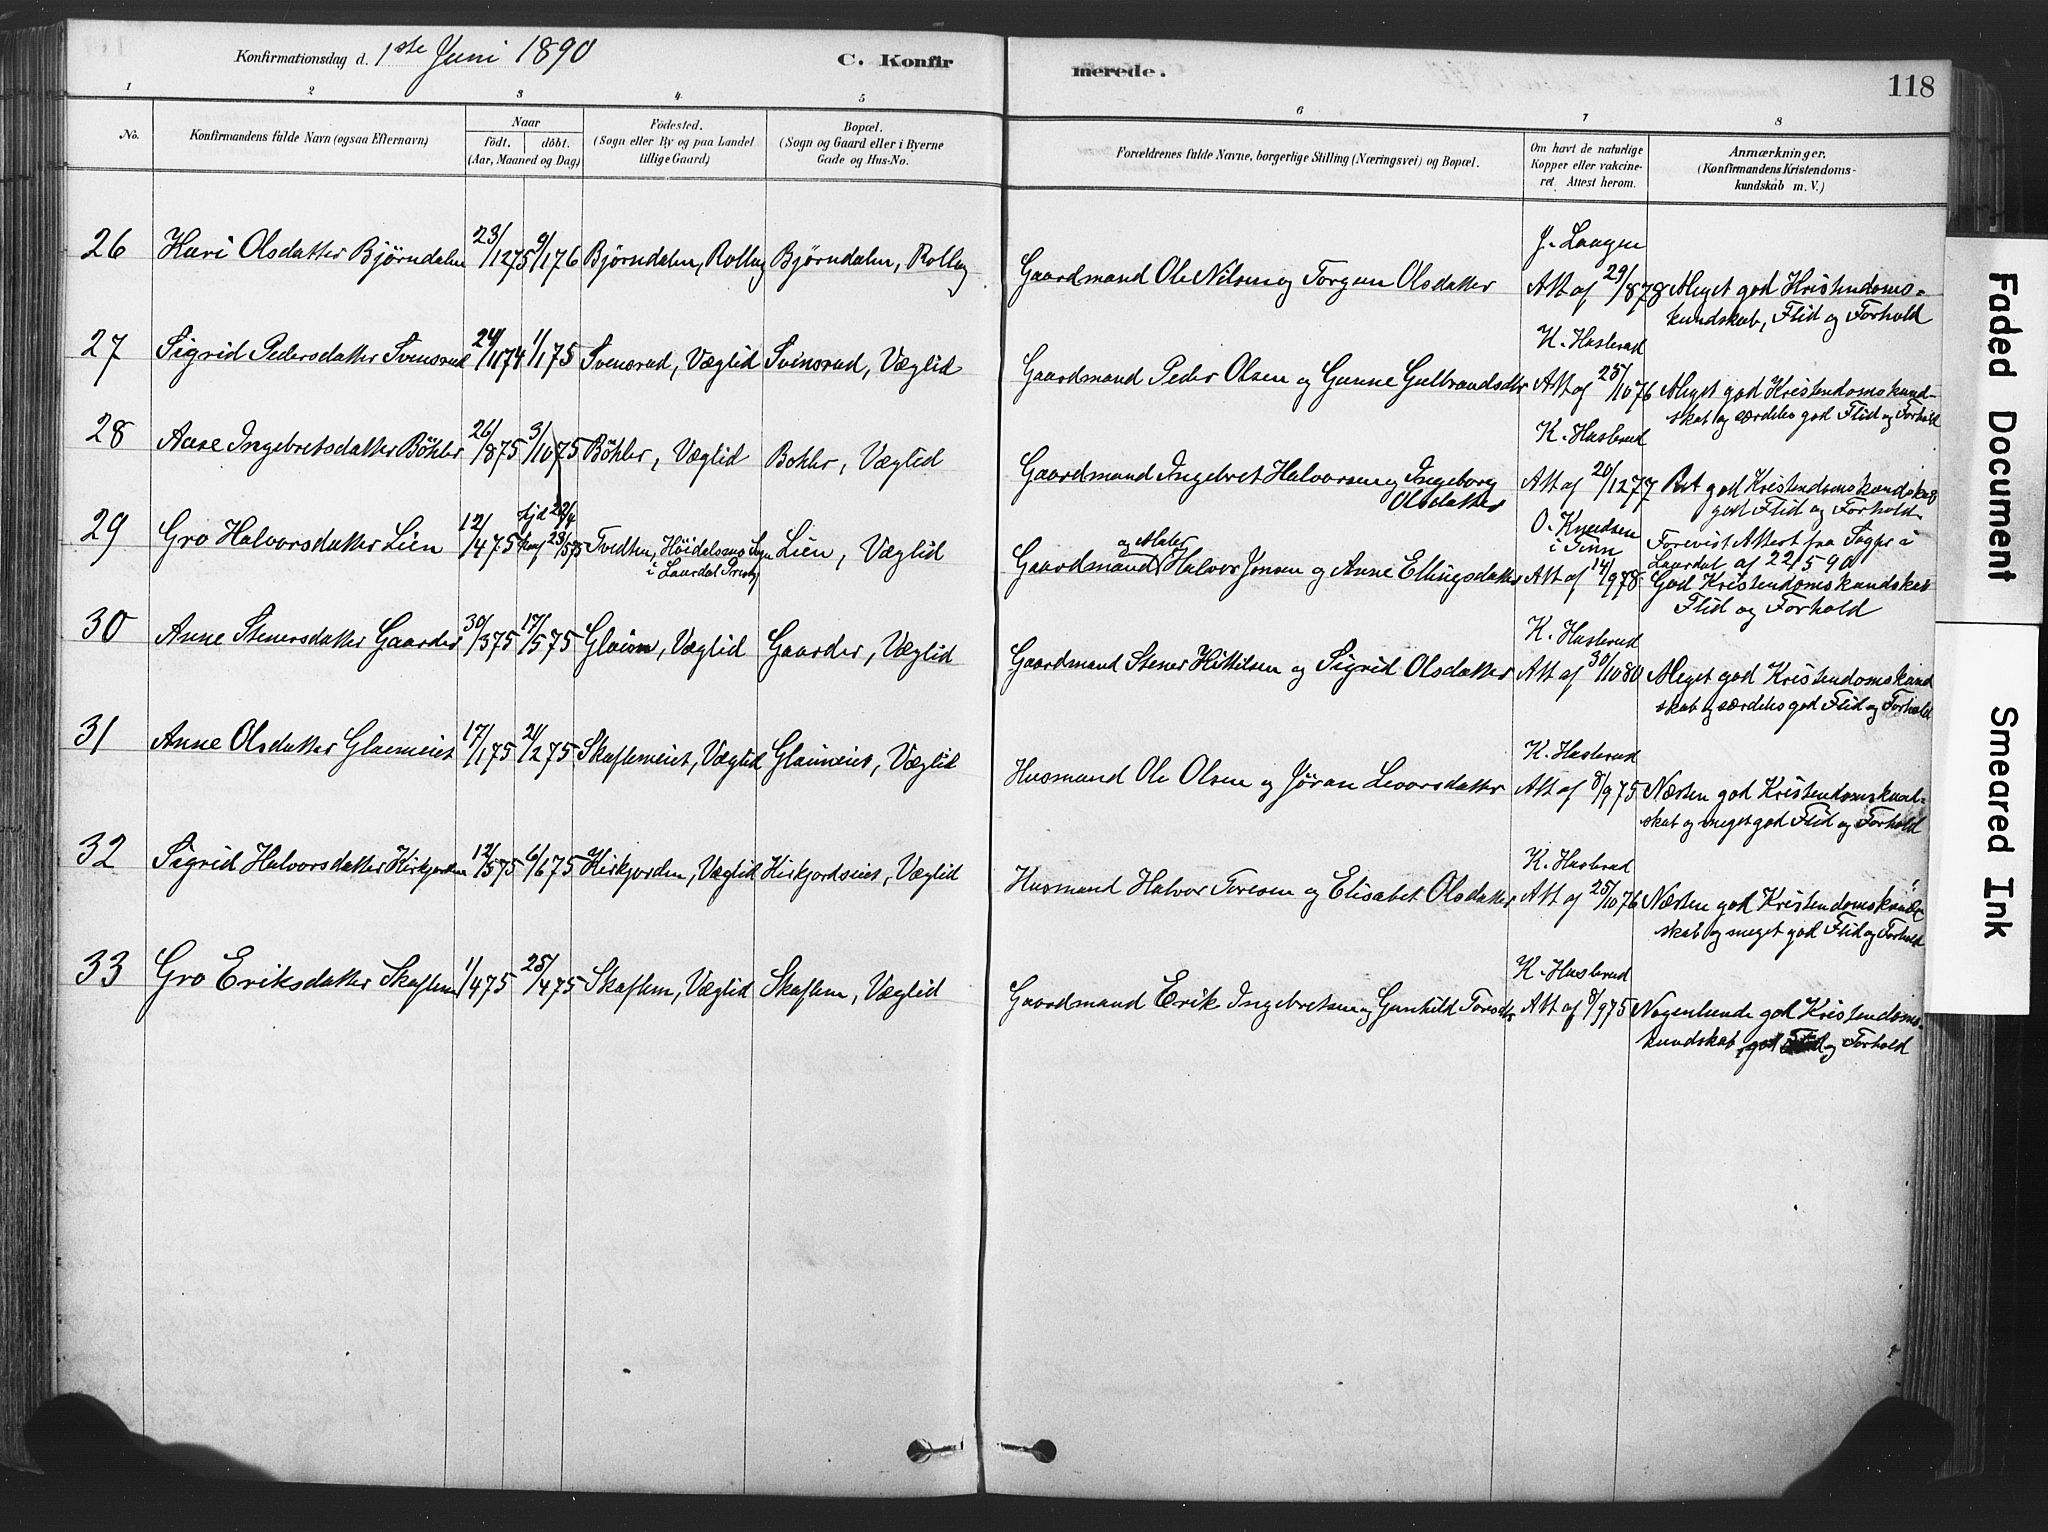 Konfirmationsdag d. 1ste Juni 1890
C. Konfirmerede.
118
1 2 3 4 5 6 7 8
No.
Konfirmandens fulde Navn (ogsaa Efternavn)
Naar
födt. döbt.
(Aar, Maaned og Dag)
Födested.
(Sogn eller By og paa Landet
tillige Gaard)
Bopæl.
(Sogn og Gaard eller i Byerne
Gade og Hus-No.
Forældrenes fulde Navne, borgerlige Stilling (Næringsvei) og Bopæl.
Om havt de naturlige
Kopper eller vakcine-
ret. Attest herom.
Anmærkninger.
(Konfirmandens Kristendoms-
kundskab m. V.)
26 Kari Olsdatter Bjørndalen 23/1275 9/176 Bjørndalen, Rollag Bjørndalen, Rollag Gaardmand Ole Nilsen og Torgun Olsdatter
J. Laagen
Att af 29/878
Meget god Kristendoms-
kundskab, Flid og Forhold
27 Sigrid Pedersdatter Svensrud 24/1174 1/175 Svensrud, Væglid Svensrud, Væglid Gaardmand Peder Olsen og Gunne Gulbrandsdtr
K. Hasbrud
Att af 25/1076
Meget god Kristendomskund-
skab og særdeles god Flid og Forhold
28 Aase Ingebretsdatter Böhler 26/875 3/1075 Böhler, Væglid Bohler, Væglid Gaardmand Ingebret Halvorsen og Ingeborg
Olsdatter
K. Hasbrud
Att af 20/1277
Ret god Kristendomskundskab
god Flid og Forhold
29 Gro Halvorsdatter Lien 12/475 hjd 22/4
23/575 Tvedten, Høidalsmo Sogn
i Laurdal Præstg Lien, Væglid
Gaardmand og Maler Halvor Jonsen og Anne Ellingsdatter
O. Knudsen
i Tinn
Att af 14/978
Forevist Attest fra Sogpr i
Laurdal af 22 5 90
God Kristendomskundskab
Flid og Forhold
30 Anne Stenersdatter Gaarder 30/375 17/575 Glaim, Væglid Gaarder, Væglid Gaardmand Stener Kittilsen og Sigrid Olsdatter
K. Hasbrud
Att af 30/1080
Meget god Kristendomskund
skab og særdeles god Flid og Forhold
31 Anne Olsdatter Glaimeiet 17/175 21/275 Skaflemeiet, Væglid Glaimeiet, Væglid Husmand Ole Olsen og Jöran Levorsdatter
K. Hasbrud
Att af 8/975
Næsten god Kristendomskund-
skab og meget god Flid og Forhold
32 Sigrid Halvorsdatter Kirkjorden 12/575 6/675 Kirkjorden, Væglid Kirkjordseiet, Væglid Husmand Halvor Toresen og Elisabet Olsdatter
K. Hasbrud
Att af 25/1076
Næsten god Kristendomskund
skab og meget god Flid og Forhold
33 Gro Eriksdatter Skaflem 1/475 25/475 Skaflem, Væglid Skaflem, Væglid Gaardmand Erik Ingebretsen og Gunhild Toresdtr
K. Hasbrud
Att af 8/975
Nogenlunde god Kristendoms-
kundskab, god Flid og Forhold
Faded Document
Smeared Ink